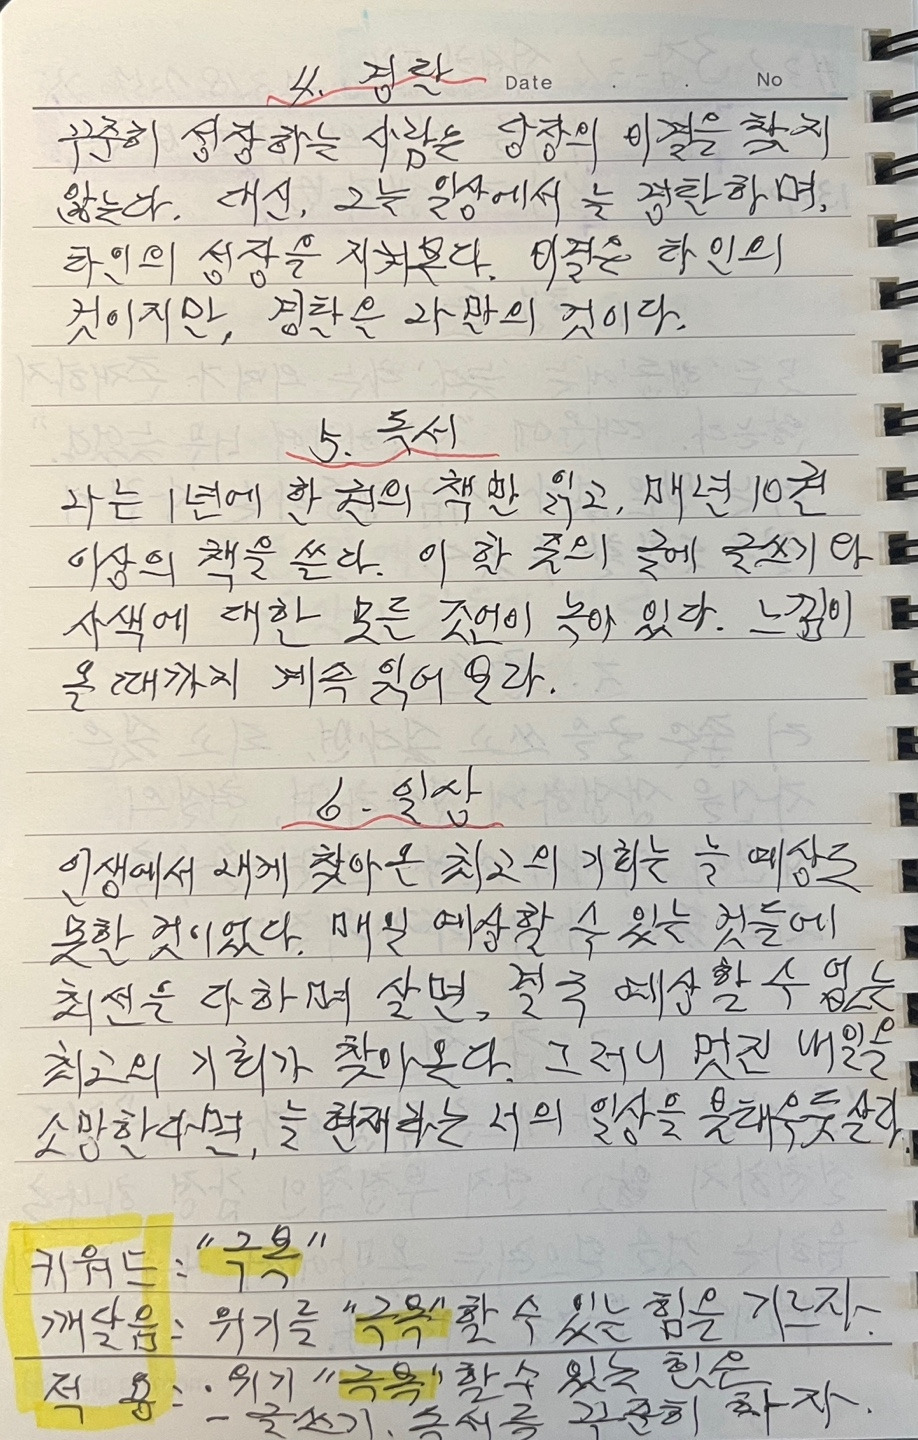 4. 경탄
Date . . No
꾸준히 성장하는 사람은 당장의 비결을 찾지
않는다. 대신, 그는 일상에서 늘 경탄하며,
타인의 성장을 지켜본다. 비결은 타인의
것이지만, 경탄은 나만의 것이다.
5. 독서
나는 1년에 한 권의 책만 읽고, 매년 10권
이상의 책을 쓴다. 이 한 줄의 글에 글쓰기와
사색에 대한 모든 조언이 녹아 있다. 느낌이
올 때까지 계속 읽어 보라.
6. 일상
인생에서 내게 찾아온 최고의 기회는 늘 예상조
못한 것이었다. 매일 예상할 수 있는 것들에
최선을 다하며 살면, 결국 예상할 수 없는
최고의 기회가 찾아온다. 그러니 멋진 내일을
소망한다면, 늘 현재라는 너의 일상을 불태우듯 살라.
키워드 : "극복"
깨달음 : 위기를 "극복"할 수 있는 힘을 기르자.
적 용 : · 위기 "극복"할 수 있는 힘은
- 글쓰기. 독서를 꾸준히 하자.